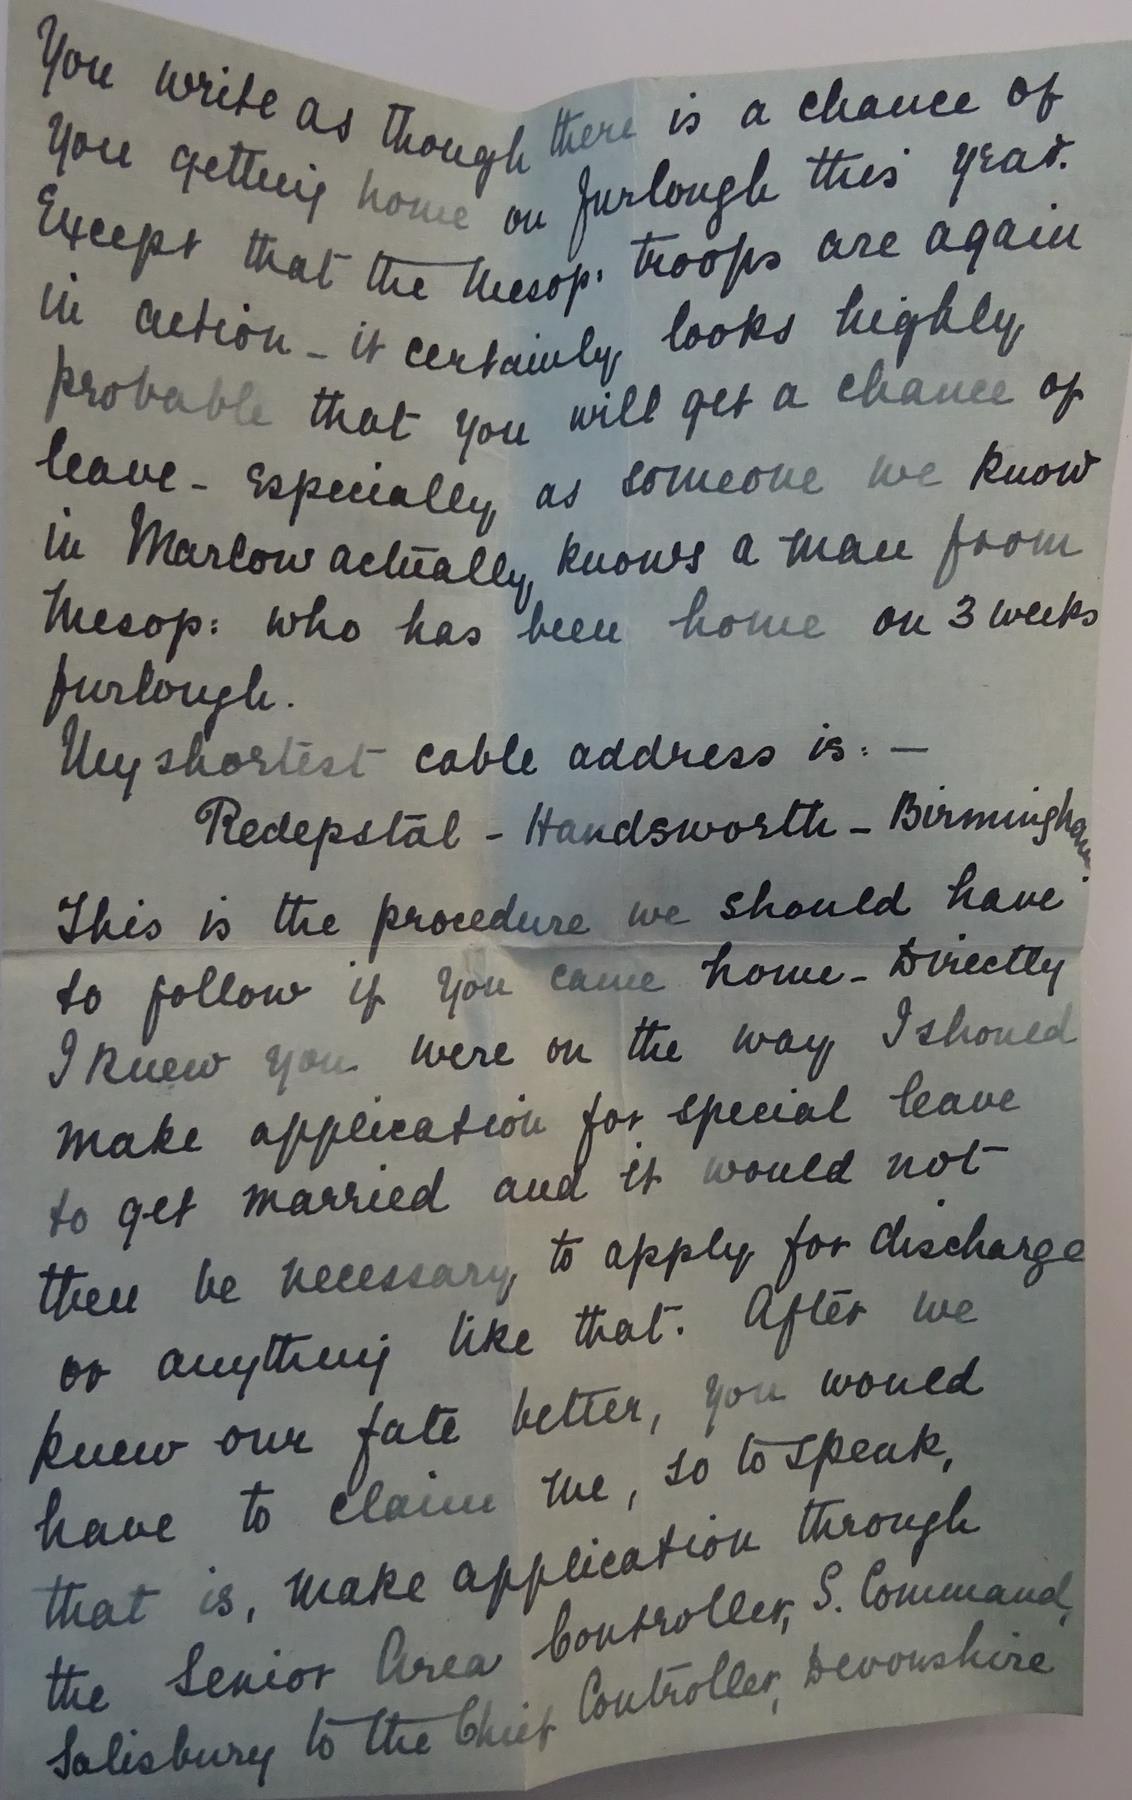 You write as though there is a chance of
you getting home on furlough this year.
Except that the Mesop: troops are again
in action – it certainly looks highly
probable that you will get a chance of
leave – Especially as someone we know
in Marlow actually knows a man from
Mesop: who has been home on 3 weeks
furlough.
My shortest cable address is: —
Redepstal – Handsworth – Birmingham.
This is the procedure we should have
to follow if you came home – Directly
I knew you were on the way I should
make application for special leave
to get married and it would not
then be necessary to apply for discharge
or anything like that. After we
knew our fate better, you would
have to claim me, so to speak,
that is, make application through
the Senior Area Controller, S. Command,
Salisbury to the Chief Controller, Devonshire